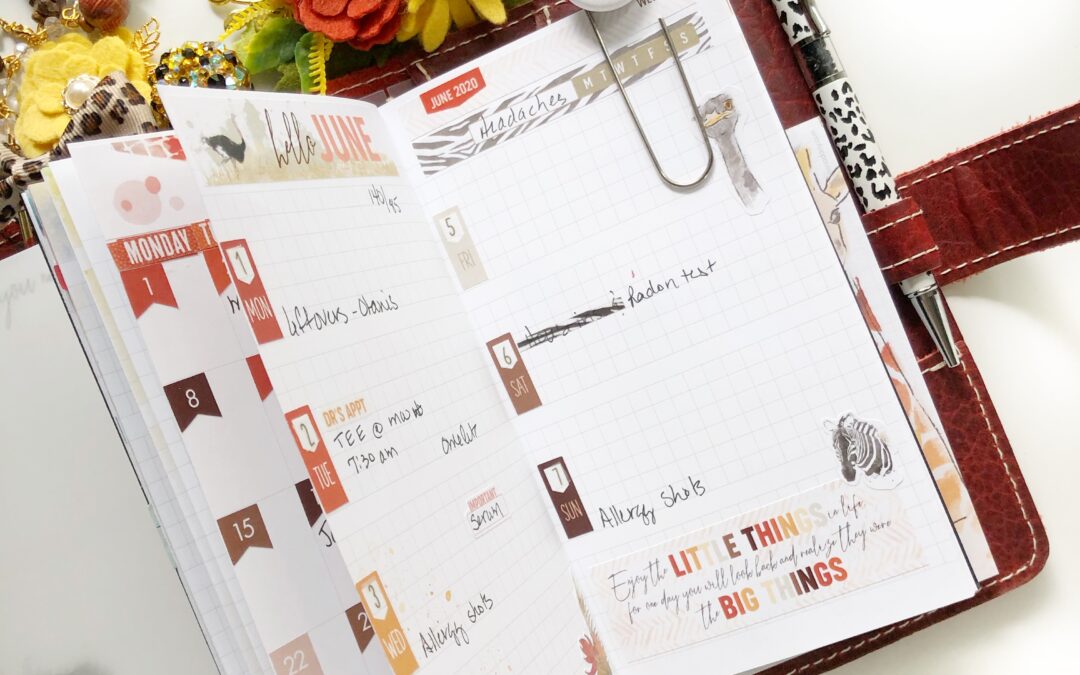 hello JUNE
140/95
MONDAY T
1
8
15
22
1
MON
Leftovers - Otanis
2
TUE
DR'S APPT
TEE @ mwrb
7:30 am
Omelet
IMPORTANT...
serum
3
WED
Allergy shots
JUNE 2020
M T W T F S S
Headaches
5
FRI
6
SAT
Radon test
7
SUN
Allergy shots
Enjoy the LITTLE THINGS in life
for one day you will look back and realize they were
the BIG THINGS